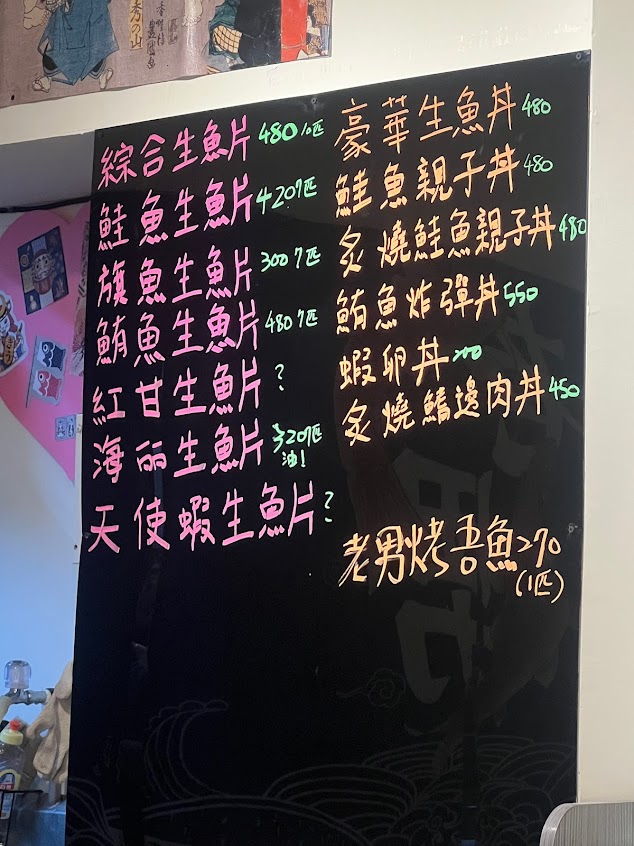 綜合生魚片 480 10匹
鮭魚生魚片 420 7匹
旗魚生魚片 300 7匹
鮪魚生魚片 480 7匹
紅甘生魚片 ?
海丽生魚片 320 7匹
油!
天使蝦生魚片 ?
豪華生魚丼 480
鮭魚親子丼 480
炙燒鮭魚親子丼 480
鮪魚炸彈丼 550
蝦卵丼 200
炙燒鰭邊肉丼 450
老男烤吾魚 270
(1匹)